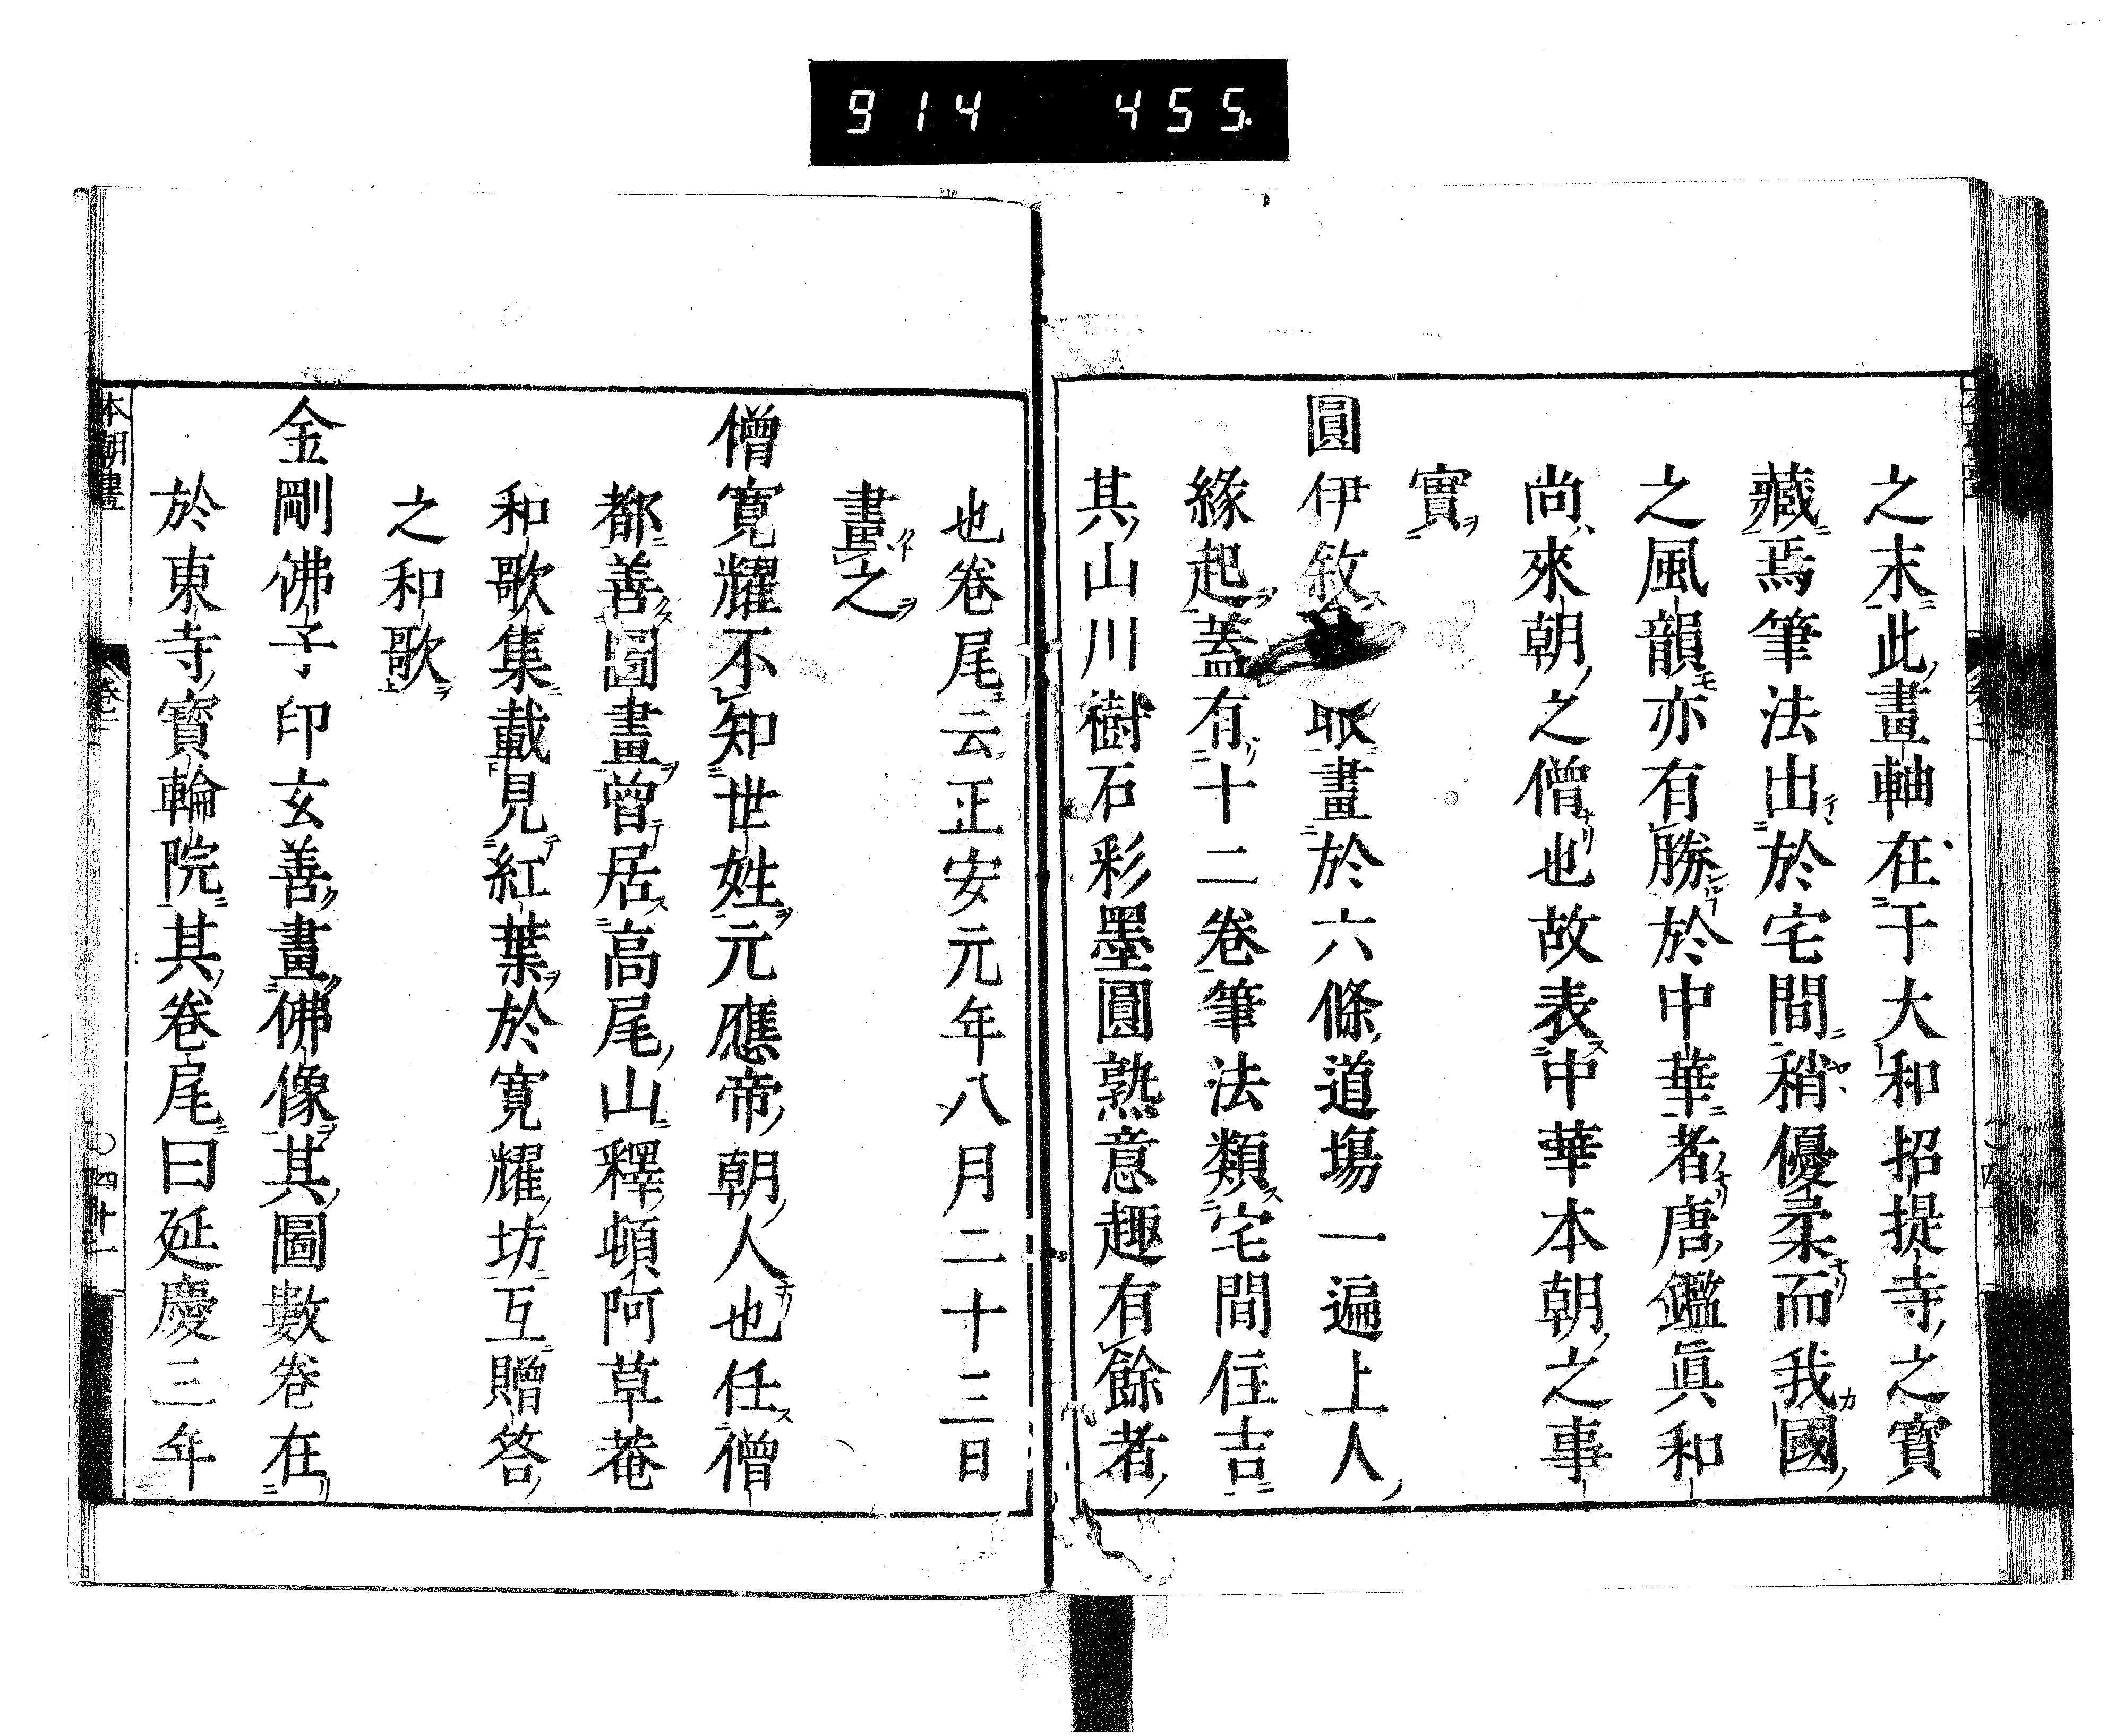 914 455
之末此畫軸在于大和招提寺之寶
藏焉筆法出於宅間稍優柔而我國
之風韻亦有勝於中華者唐鑑眞和
尚來朝之僧也故表中華本朝之事
實
圓伊敘 畫於六條道場一遍上人
緣起蓋有十二卷筆法類宅間住吉
其山川樹石彩墨圓熟意趣有餘者
也卷尾云正安元年八月二十三日
畫之
僧寬耀不知世姓元應帝朝人也任僧
都善圖畫曾居高尾山釋頓阿草菴
和歌集載見紅葉於寬耀坊互贈答
之和歌
金剛佛子印玄善畫佛像其圖數卷在
於東寺寶輪院其卷尾曰延慶三年
本朝畫
卷二
四十一